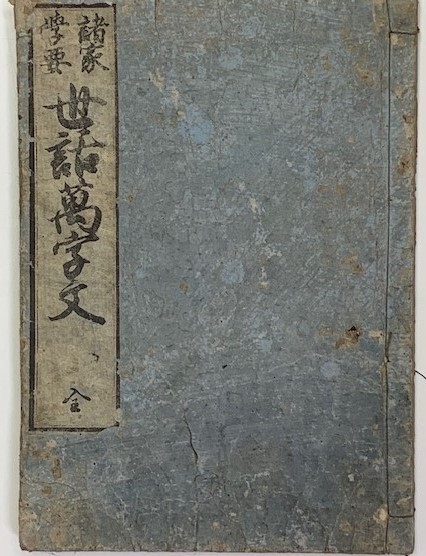 諸家
學要
世話萬字文
全